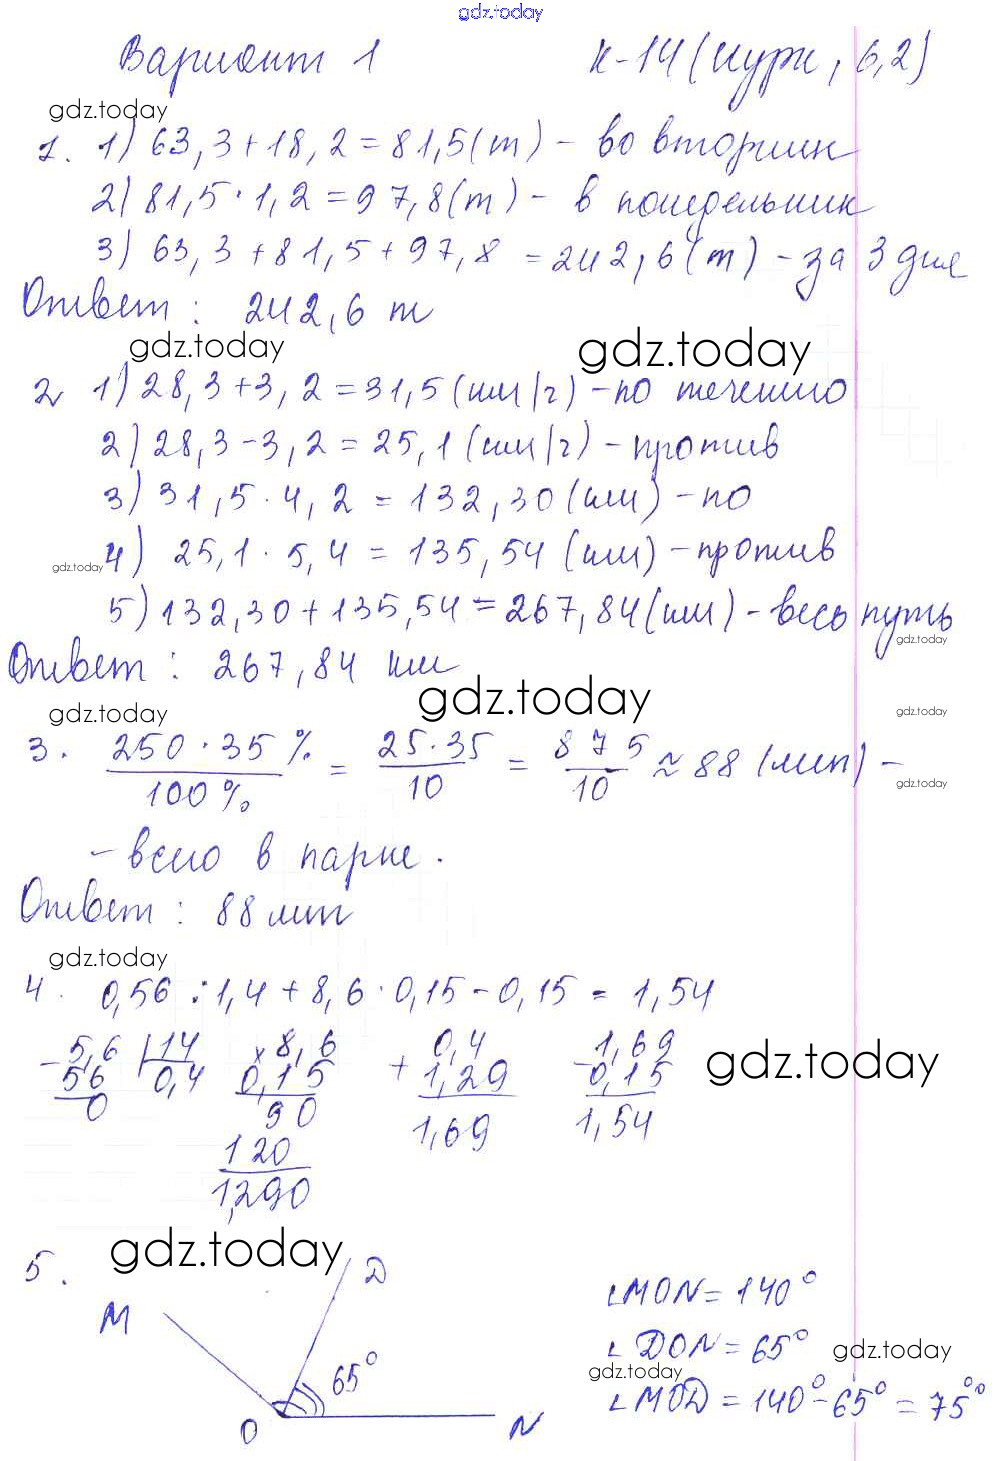 gdz.today
Вариант 1 К-14 (Журн, 6,2)
gdz.today
1. 1) 63,3 + 18,2 = 81,5 (т) - во вторник
2) 81,5 · 1,2 = 97,8 (т) - в понедельник
3) 63,3 + 81,5 + 97,8 = 242,6 (т) - за 3 дня
Ответ: 242,6 т
gdz.today gdz.today
2. 1) 28,3 + 3,2 = 31,5 (км/ч) - по течению
2) 28,3 - 3,2 = 25,1 (км/ч) - против
3) 31,5 · 4,2 = 132,30 (км) - по
gdz.today 4) 25,1 · 5,4 = 135,54 (км) - против
5) 132,30 + 135,54 = 267,84 (км) - весь путь
gdz.today
Ответ: 267,84 км
gdz.today gdz.today gdz.today
3. 250 · 35 % / 100 % = 25 · 35 / 10 = 875 / 10 ≈ 88 (лип) -
gdz.today
- всего в парке.
Ответ: 88 лип
gdz.today
4. 0,56 : 1,4 + 8,6 · 0,15 - 0,15 = 1,54
- 5,6 | 14 × 8,6 0,4 1,69
56 0,4 0,15 + 1,29 - 0,15
0 90 1,69 1,54
120
1,290
gdz.today
5. gdz.today
D
M
65°
O N
∠MON = 140°
∠DON = 65° gdz.today
gdz.today
∠MOD = 140° - 65° = 75°